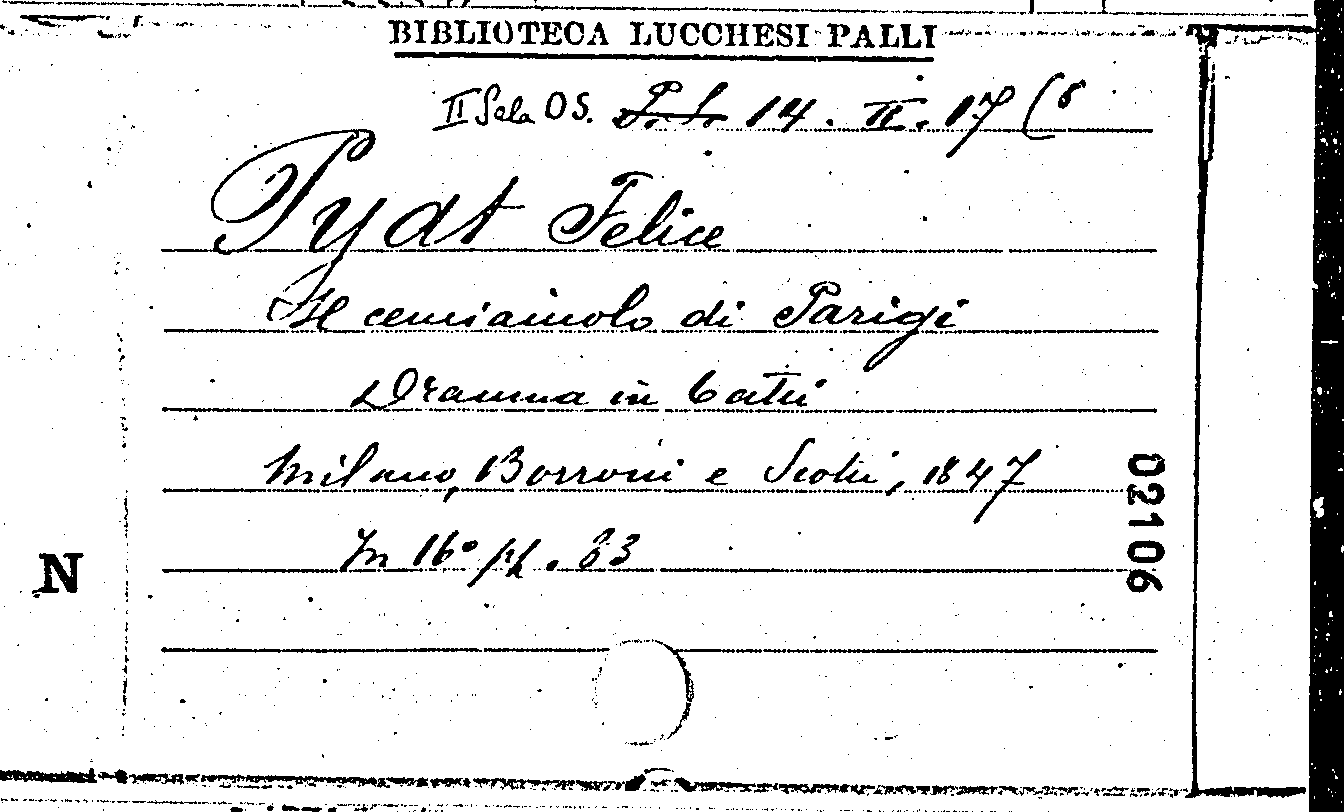 BIBLIOTECA LUCCHESI PALLI
II Sala O S. P. S. 14. II. 17 (8
Pyat Felice
Il cenciaiuolo di Parigi
Dramma in 6 atti
Milano, Borroni e Scotti, 1847
In 16° pp. 83
02106
N